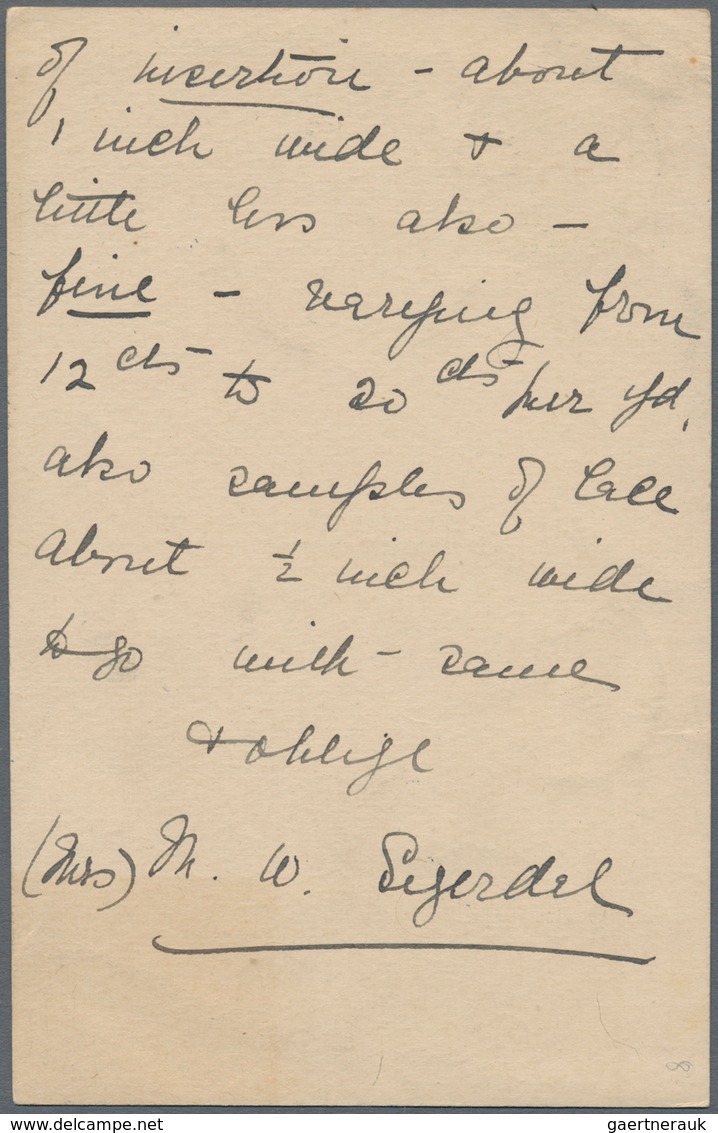 of insertion - about
1 inch wide + a
little less also -
fine - varying from
12 cts to 20 cts per yd.
also samples of lace
about ½ inch wide
to go with - same
+ oblige
(Mrs) M. W. Segerdel
gaertnerauk